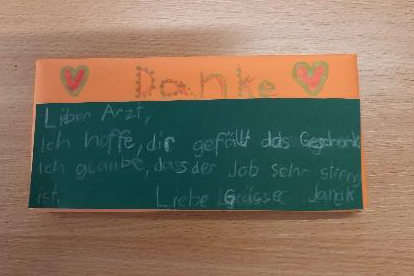 Danke
Liber Arzt,
Ich hoffe, dir gefällt das Geschenk
Ich glaube, dass der Job sehr streng
ist. Liebe Grüsse Janik